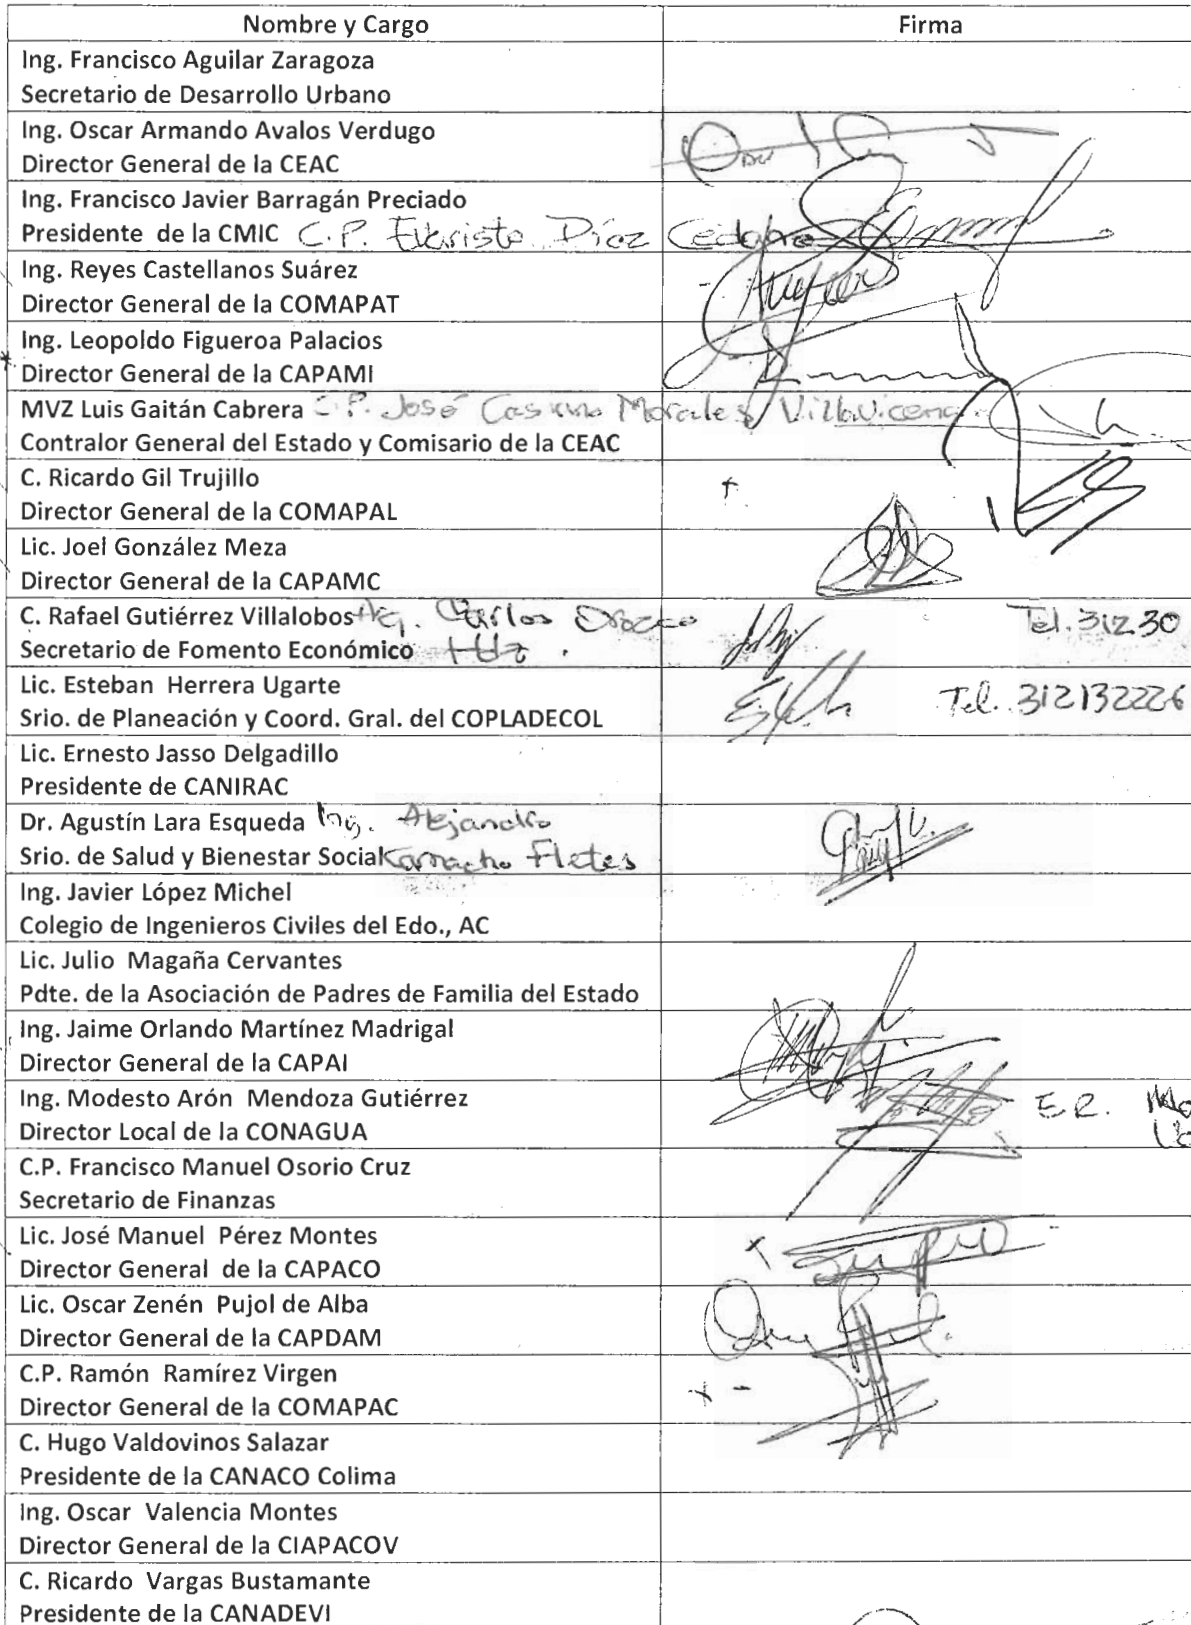 Nombre y Cargo Firma
Ing. Francisco Aguilar Zaragoza
Secretario de Desarrollo Urbano
Ing. Oscar Armando Avalos Verdugo
Director General de la CEAC
Ing. Francisco Javier Barragán Preciado
Presidente de la CMIC C.P. Evaristo Díaz
Ing. Reyes Castellanos Suárez
Director General de la COMAPAT
Ing. Leopoldo Figueroa Palacios
Director General de la CAPAMI
MVZ Luis Gaitán Cabrera C.P. José Morales
Contralor General del Estado y Comisario de la CEAC
C. Ricardo Gil Trujillo
Director General de la COMAPAL
Lic. Joel González Meza
Director General de la CAPAMC
C. Rafael Gutiérrez Villalobos Carlos Orozco Tel. 312 30
Secretario de Fomento Económico
Lic. Esteban Herrera Ugarte
Srio. de Planeación y Coord. Gral. del COPLADECOL Tel. 312132226
Lic. Ernesto Jasso Delgadillo
Presidente de CANIRAC
Dr. Agustín Lara Esqueda Ing. Alejandro
Srio. de Salud y Bienestar Social Camacho Fletes
Ing. Javier López Michel
Colegio de Ingenieros Civiles del Edo., AC
Lic. Julio Magaña Cervantes
Pdte. de la Asociación de Padres de Familia del Estado
Ing. Jaime Orlando Martínez Madrigal
Director General de la CAPAI
Ing. Modesto Arón Mendoza Gutiérrez E.R.
Director Local de la CONAGUA
C.P. Francisco Manuel Osorio Cruz
Secretario de Finanzas
Lic. José Manuel Pérez Montes
Director General de la CAPACO
Lic. Oscar Zenén Pujol de Alba
Director General de la CAPDAM
C.P. Ramón Ramírez Virgen
Director General de la COMAPAC
C. Hugo Valdovinos Salazar
Presidente de la CANACO Colima
Ing. Oscar Valencia Montes
Director General de la CIAPACOV
C. Ricardo Vargas Bustamante
Presidente de la CANADEVI